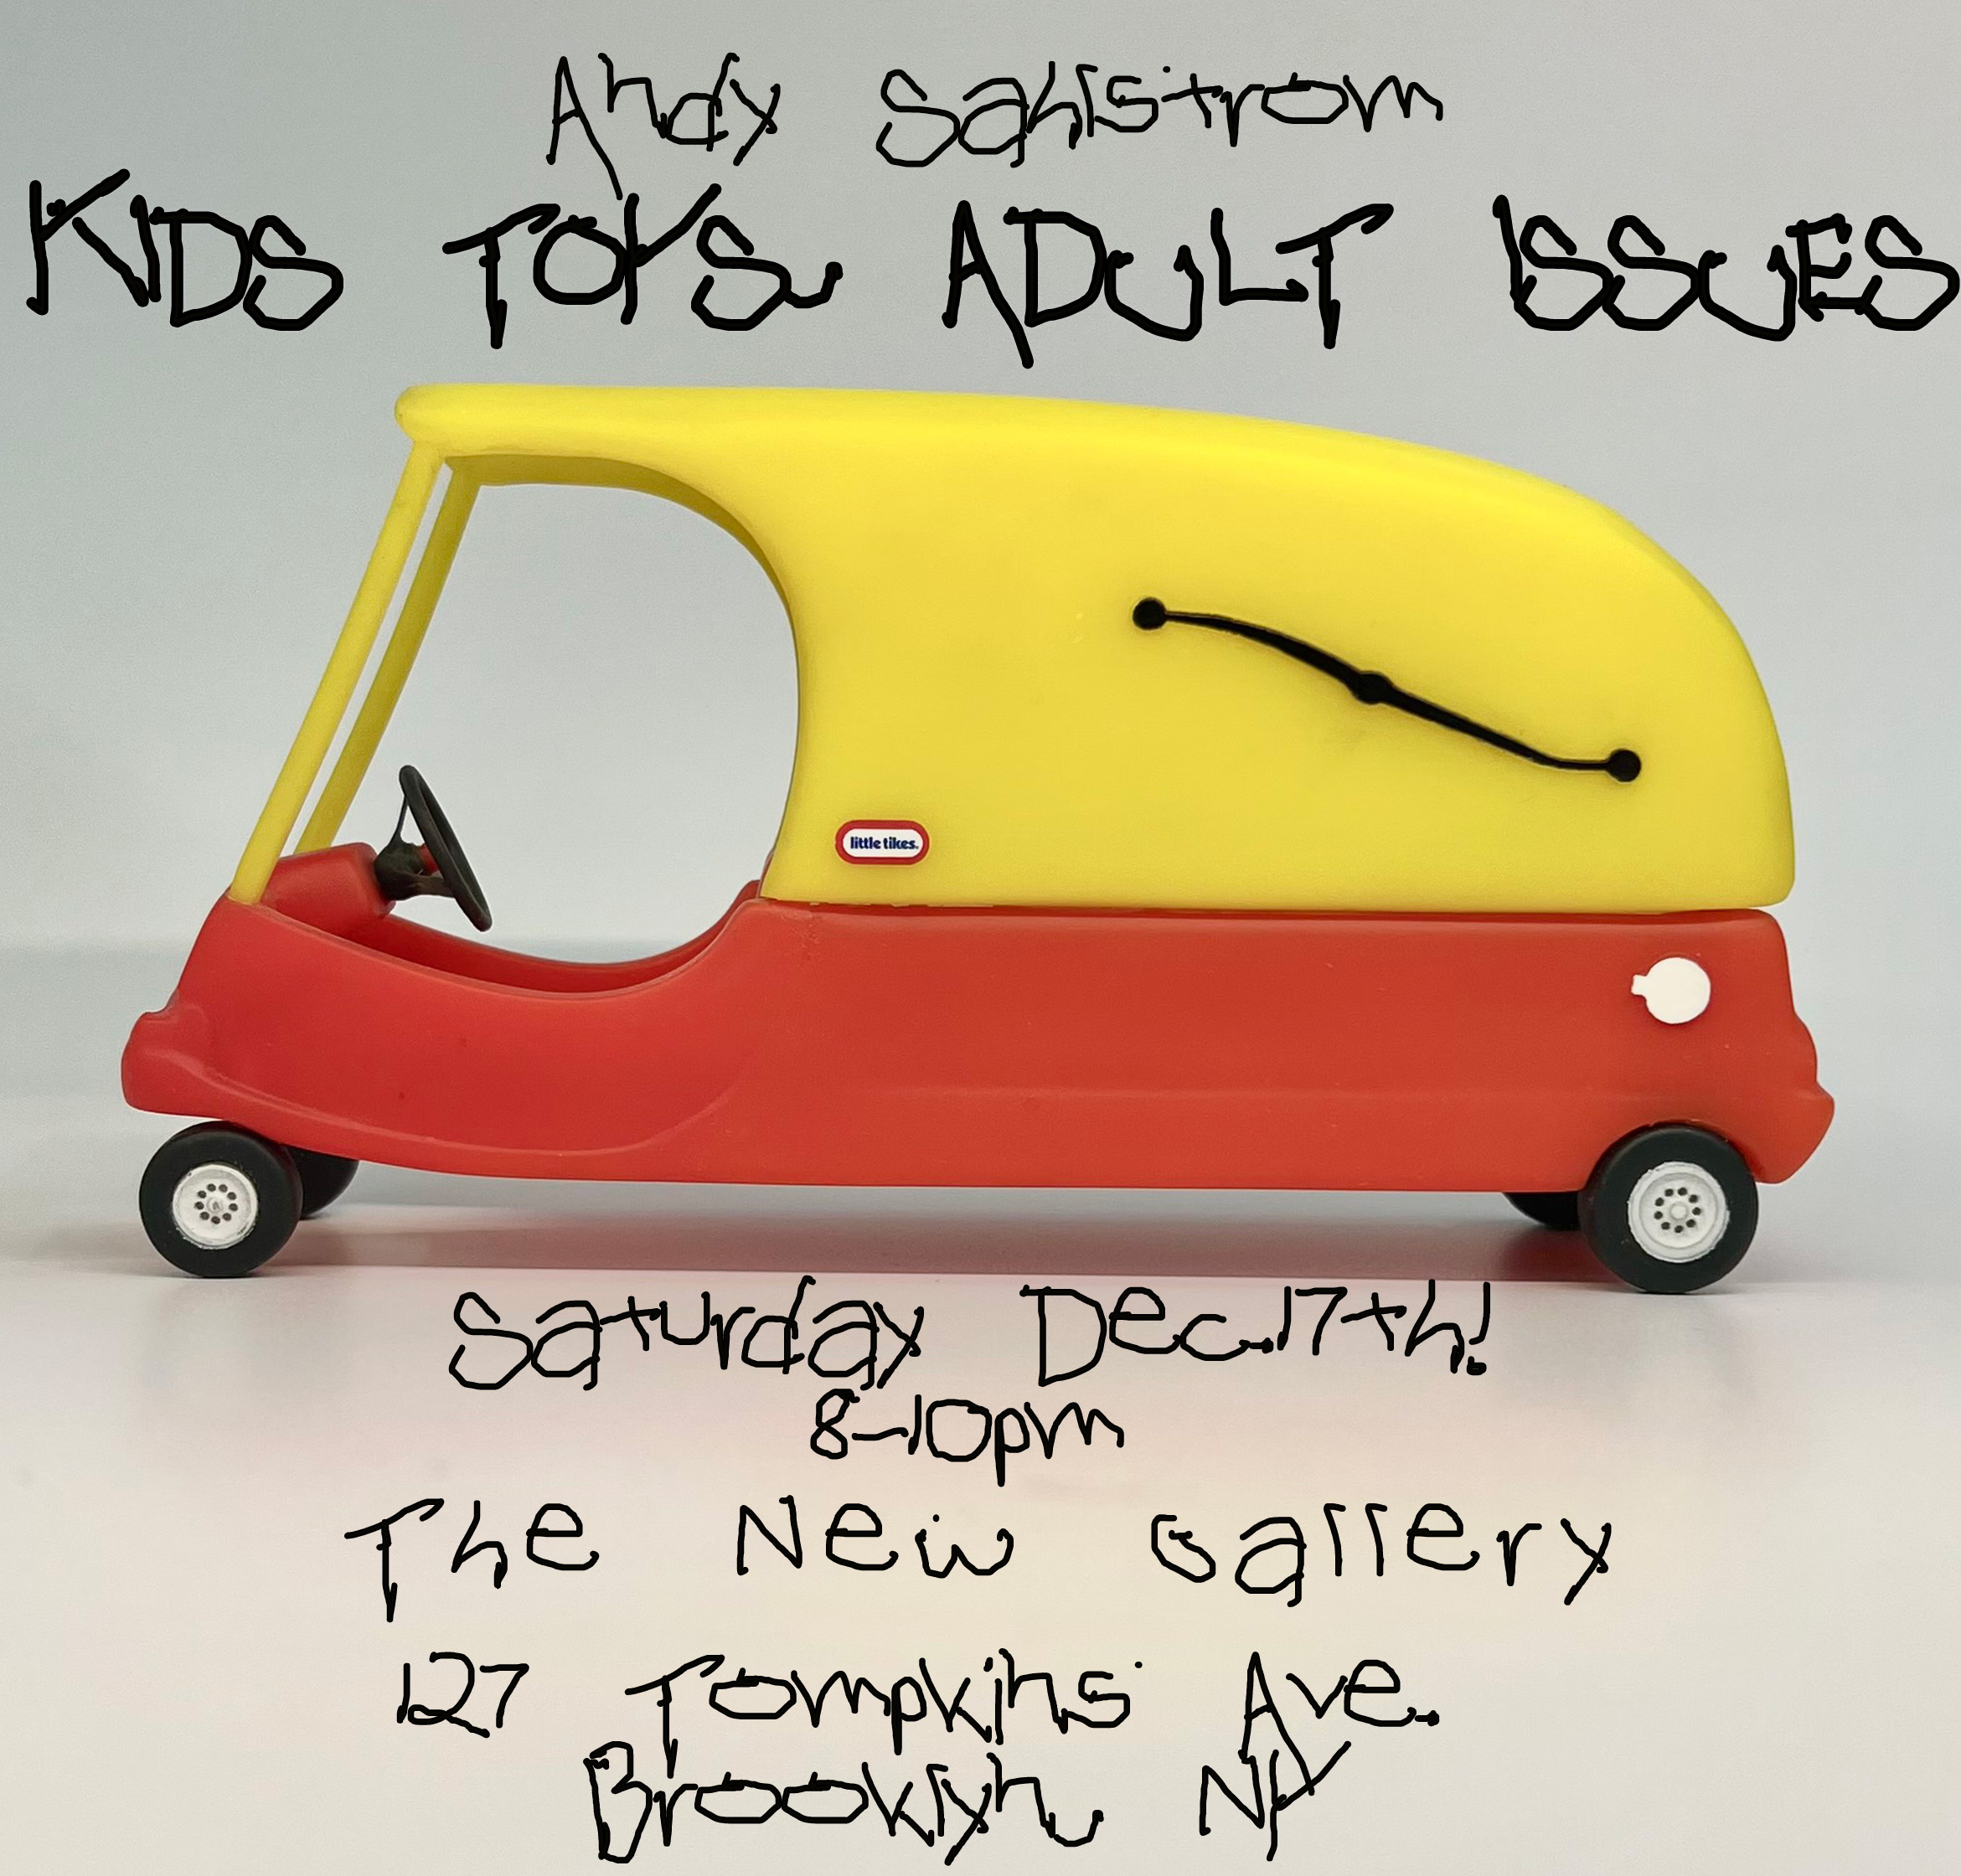 Andy Sahlstrom
KIDS TOYS, ADULT ISSUES
little tikes.
Saturday Dec.17th!
8-10pm
The New Gallery
127 Tompkins Ave.
Brooklyn, NY